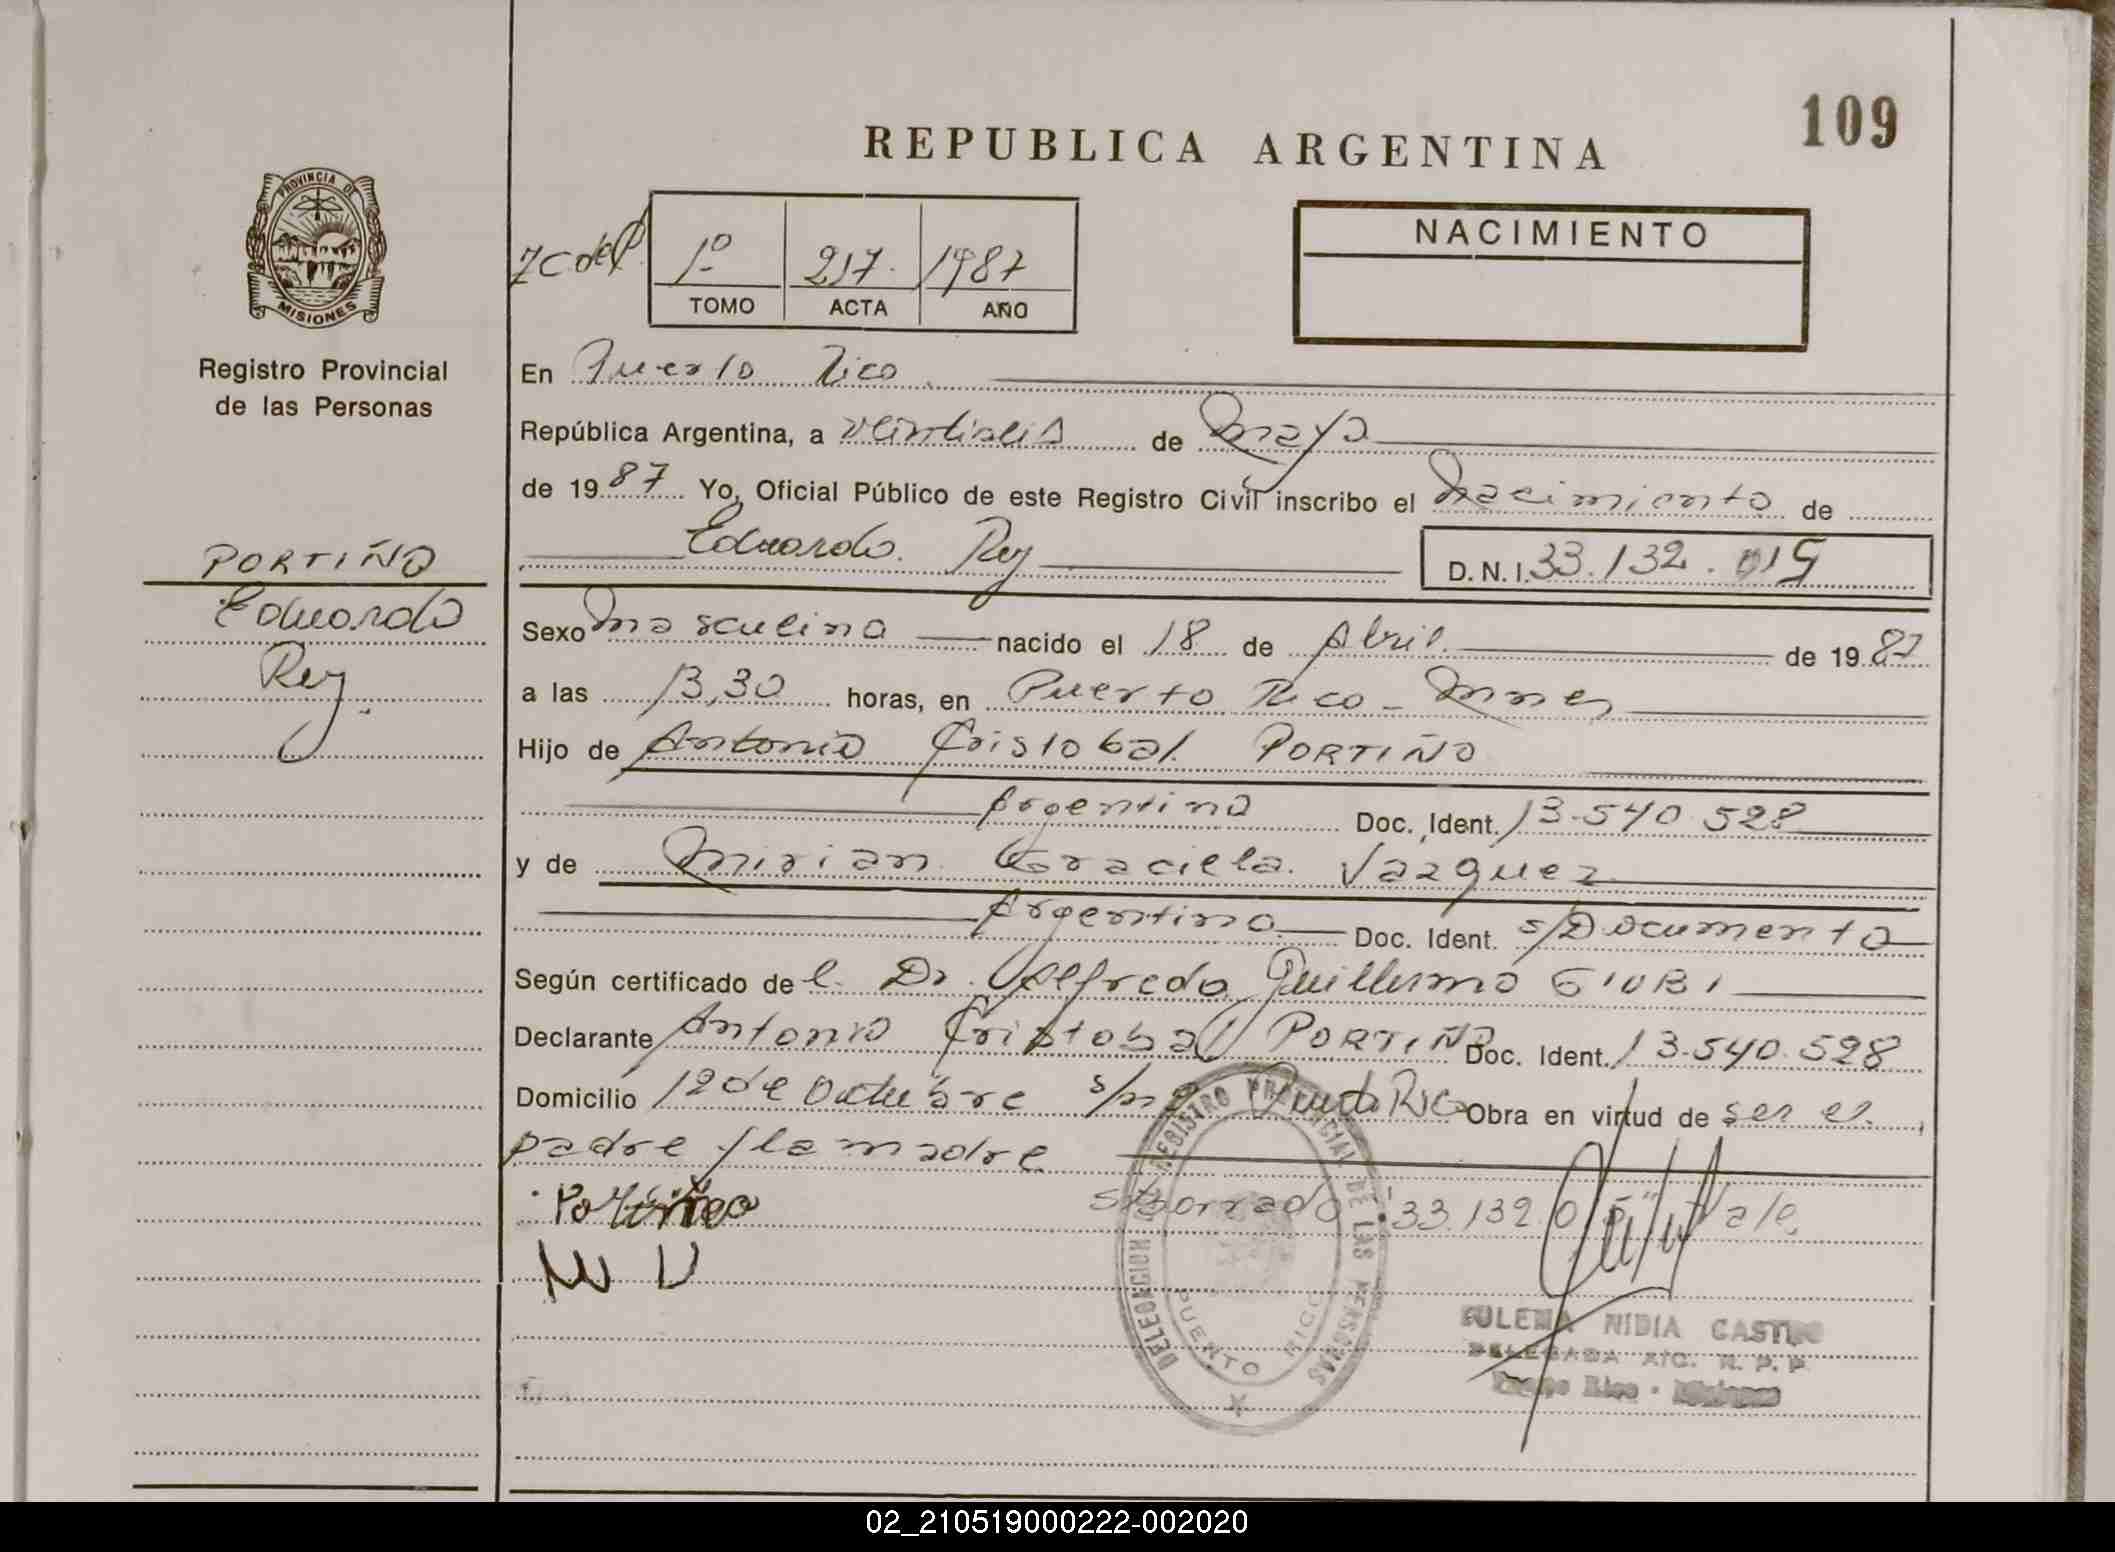 109
REPUBLICA ARGENTINA
PROVINCIA DE
MISIONES
Registro Provincial
de las Personas
1º 217. 1987
TOMO ACTA AÑO
NACIMIENTO
En Puerto Rico.
República Argentina, a veintiseis de Mayo
de 1987 Yo, Oficial Público de este Registro Civil inscribo el Nacimiento de
PORTIÑO
Eduardo
Rey.
Eduardo. Rey
D. N. I. 33.132.015
Sexo Masculino nacido el 18 de Abril. de 1987
a las 13,30 horas, en Puerto Rico - Mnes
Hijo de Antonio Cristobal. PORTIÑO
Argentino Doc. Ident. 13.540.528
y de Mirian Graciela. Vazquez
Argentina Doc. Ident. s/Documento
Según certificado de l. Dr. Alfredo Guillermo GIUBI
Declarante Antonio Cristobal PORTIÑO Doc. Ident. 13.540.528
Domicilio 12 de Octubre s/nº Puerto Rico Obra en virtud de ser el.
padre /la madre
Portiño s/borrado: "33.132.015" Vale
M V
DELEGACION REGISTRO PROVINCIAL DE LAS PERSONAS
PUERTO RICO
NIDIA CASTRO
DELEGADA A/C. R. P. P.
Puerto Rico - Misiones
02_210519000222-002020